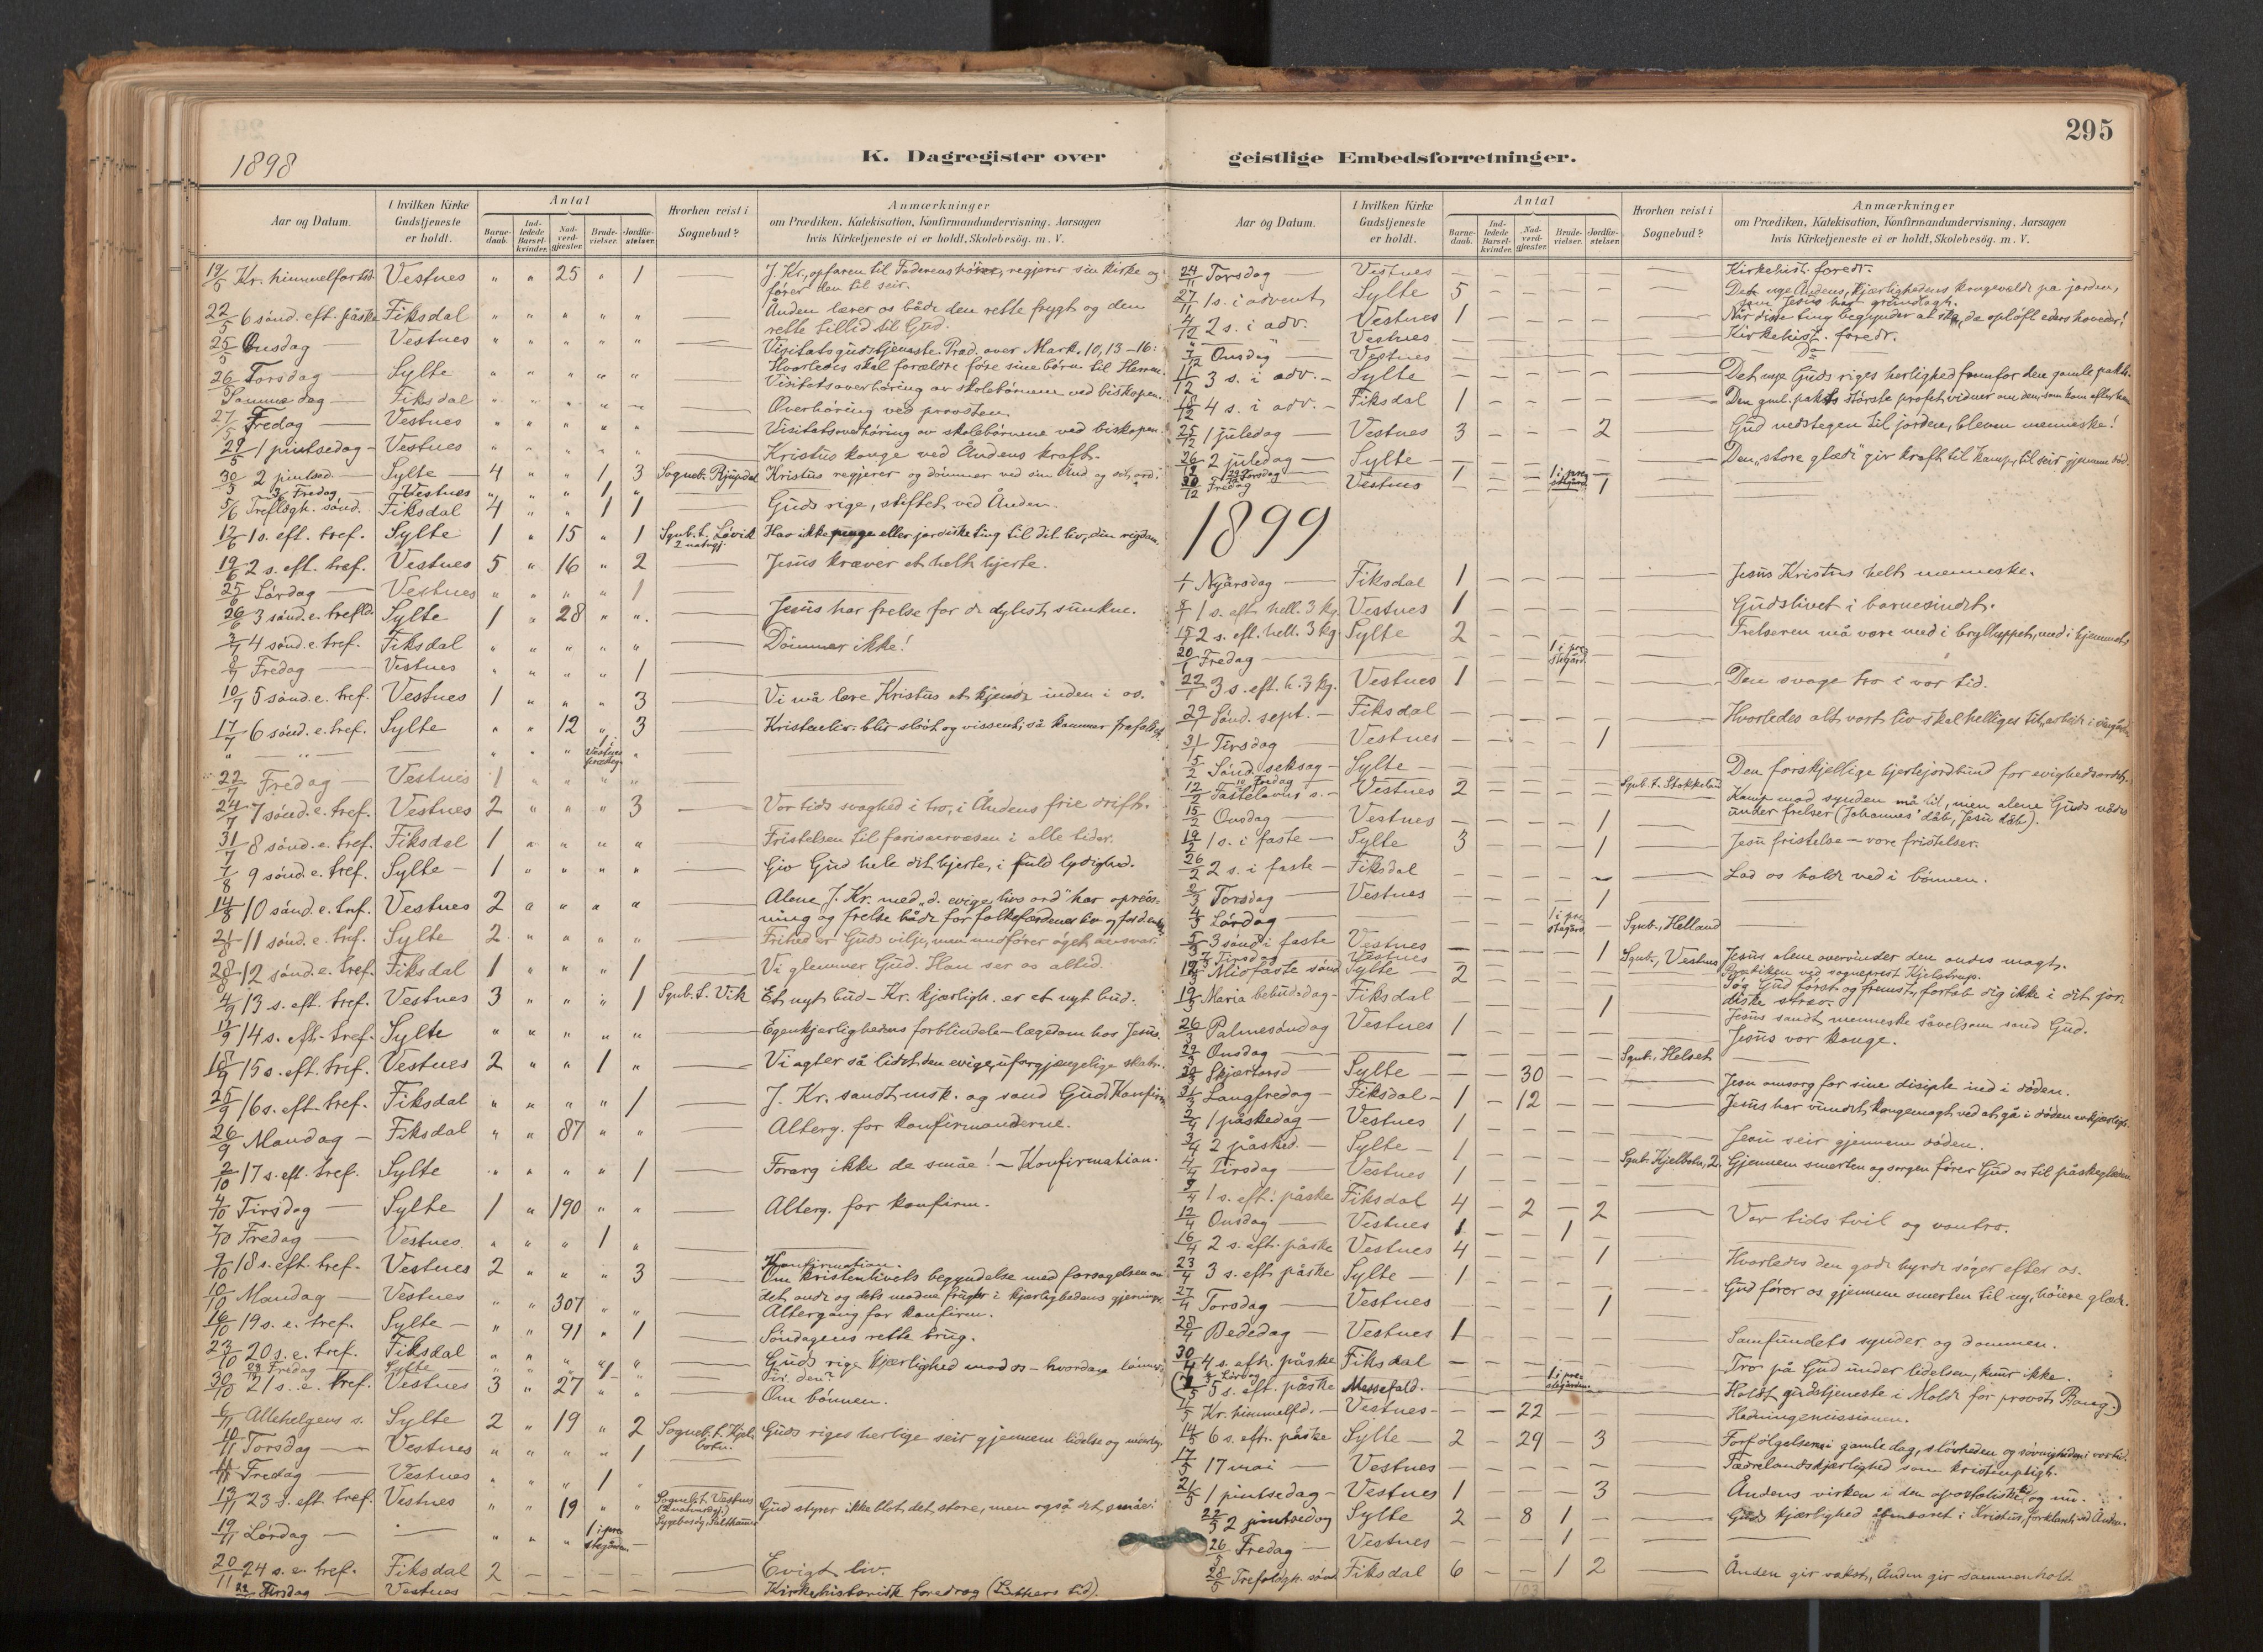 295
1898
K. Dagregister over geistlige Embedsforretninger.
Aar og Datum. | I hvilken Kirke Gudstjeneste er holdt. | Antal | Barnedaab. | Indledede Barselkvinder. | Nadverdgjester. | Brudevielser. | Jordfæstelser. | Hvorhen reist i Sognebud? | Anmærkninger om Prædiken, Katekisation, Konfirmandundervisning, Aarsagen hvis Kirketjeneste ei er holdt, Skolebesög. m. V.
19/5 Kr. himmelfartsd. Vestnes " " 25 " 1 J. Kr., opfaren til Faderens höire, regjerer sin kirke og
fører den til seir.
22/5 6 sönd. eft. påske Fiksdal " " " " " — Ånden lærer os både den rette frygt og den
rette tillid til Gud.
25/5 Onsdag Vestnes " " " " " — Visitatsgudstjeneste. Præd. over Mark. 10,13-16:
Hvorledes skal forældre føre sine børn til Herren.
26/5 Torsdag — Sylte " " " " " — Visitatsoverhöring av skolebörnene ved biskopen.
Samme dag — Fiksdal " " " " — Overhöring ved provsten.
27/5 Fredag — Vestnes " " " " " — Visitatsoverhöring av skolebörnene ved biskopen.
29/5 1 pintsedag — Vestnes " " " " " — Kristus konge ved Åndens kraft.
30/5 2 pintsed. — Sylte — 4 " " 1 3 Sogneb. Kristus regjerer og dömmer ved sin Ånd og sit ord.
Fredag — Vestnes " " " 1 "
5/6 Trefoldgh. sönd. Fiksdal 4 " " 1 1 — Guds rige, stiftet ved Ånden.
12/6 1 s. eft. tref. Sylte 1 " 15 " 1 Sgnb. t. Lövik Hav ikke penge eller jordiske ting til dit liv, din rigdom.
19/6 2 s. eft. tref. Vestnes 5 " 16 " 2 — Jesus kræver et helt hjerte.
25/6 Lördag — Vestnes " " " " 1 —
26/6 3 sönd. e. trefld. Sylte 1 " 28 " " — Jesus har frelse for de dybest sunkne.
3/7 4 sönd. e. tref. Fiksdal " " " " " — Dömmer ikke!
8/7 Fredag — Vestnes " " " " 1 —
10/7 5 sönd. e. tref. Vestnes 1 " " " 3 — Vi må lære Kristus at kjende inden i os.
17/7 6 sönd. e. tref. Sylte " " 12 " 3 — Kristenliv blir slövt og vissent, så kommer frafaldet.
" — " — " " " 1 i Vestnes præsteg. "
22/7 Fredag — Vestnes 1 " " " "
24/7 7 sönd. e. tref. Vestnes 2 " " " 3 — Vor tids svaghed i tro, i Åndens frie drift.
31/7 8 sönd. e. tref. Fiksdal 1 " " " " Fristelsen til farisæervæsen i alle tider.
7/8 9 sönd. e. tref. Sylte — 1 " " " " — Giv Gud hele dit hjerte, i fuld lydighed.
14/8 10 sönd. e. tref. Vestnes 2 " " " " — Alene J. Kr. med „d. evige livs ord" har opreis-
ning og frelse både for folkefærdenes liv og for d. enkelte.
21/8 11 sönd. e. tref. Sylte 2 " " " " — Frihed er Guds vilje, men medförer öget ansvar.
28/8 12 sönd. e. tref. Fiksdal 1 " " " 1 — Vi glemmer Gud. Han ser os altid.
4/9 13 s. eft. tref. Vestnes 3 " " " 1 Sgnb. t. Vik Et nyt bud - Kr. kjærligh. er et nyt bud.
11/9 14 s. eft. tref. Sylte " " " " " — Egenkjærlighedens forblindelse - lægedom hos Jesus.
18/9 15 s. eft. tref. Vestnes 2 " " 1 " — Vi agter så lidet den evige, uforgjængelige skat.
25/9 16 s. eft. tref. Fiksdal " " " " 1 — J. Kr. sandt msk. og sand Gud. Konfirm.
26/9 Mandag — Fiksdal " " 87 " " — Alterg. for konfirmanderne.
2/10 17 s. eft. tref. Sylte " " " " 1 — Forarg ikke de småe! — Konfirmation.
4/10 Tirsdag — Sylte 1 " 190 " " — Alterg. for konfirm.
7/10 Fredag — Vestnes " " " 1 " —
9/10 18 s. eft. tref. Vestnes 2 " " " 3 — Konfirmation.
Om kristenlivets begyndelse med forsagelsen av
det onde og dets modne frugter i kjærlighedens gjerninger.
10/10 Mandag — Vestnes " " 307 " " — Altergang for konfirm.
16/10 19 s. e. tref. Sylte — " " 91 " 1 — Söndagens rette brug.
23/10 20 s. e. tref. Fiksdal " " " " " — Guds rige kjærlighed mod os - hvordan lönner
28/10 Fredag — Sylte " " " 1 — vi den?
30/10 21 s. e. tref. Vestnes 3 " 27 " " — Om bönnen.
6/11 Allehelgens s. Sylte 2 " 19 " 2 Sogneb. t. Kjelbotn. Guds riges herlige seir gjennem lidelse og
10/11 Torsdag — Vestnes " " " " 1
11/11 Fredag — Vestnes " " " 1 —
13/11 23 s. eft. tref. Vestnes " " 19 " " Sogneb. t. Vestnes Gud styrer ikke blot det store, men også det småe.
19/11 Lördag — — " " " 1 i prestegården —
20/11 24 s. e. tref. Fiksdal 2 — — — — — Evigt liv.
22/11 Tirsdag — Vestnes — — — — — Kirkehistorisk foredrag (Luthers tid).
24/11 Torsdag — Vestnes — — — — — Kirkehist. foredr.
27/11 1 s. i advent Sylte 5 — — — — — Det nye Åndens, kjærlighedens kongevælde på jorden,
som Jesus har grundlagt.
4/12 2 s. i adv. Vestnes 1 — — — — — Når disse ting begynder at ske, da opløft eders hoveder!
" " Vestnes — — — — — Kirkehist. foredr.
7/12 Onsdag — Vestnes — — — — — Do
11/12 3 s. i adv. — Sylte — — — — — Det nye Guds riges herlighed fremfor den gamle pakt.
18/12 4 s. i adv. — Fiksdal 1 — — — — — Den gml. pakts største profet vidner om den, som kom efter ham
25/12 1 juledag — Vestnes 3 — — — 2 — Gud nedstegen til jorden, bleven menneske!
26/12 2 juledag — Sylte — — — — — — Den „store glæde" gir kraft til kamp, til seir gjennem död.
29/12 Torsdag — 1 — — 1 i prestegård. —
30/12 Fredag Vestnes — — — — 1 —
1899
1/1 Nyårsdag — Fiksdal 1 — — — — — Jesus Kristus helt menneske.
8/1 1 s. eft. hell. 3 kg. Vestnes 1 — — — — — Gudslivet i barnesindet.
15/1 2 s. eft. hell. 3 kg. Sylte 2 — — — — — Frelseren må være med i brylluppet, med i hjemmet.
20/1 Fredag — — — — 1 i prestegård. —
22/1 3 s. eft. h. 3 kg. Vestnes 1 — — — — — Den svage tro i vor tid.
29/1 Sönd. sept. — Fiksdal — — — — — — Hvorledes alt vort liv skal helliges til arbeide i vingården.
31/1 Tirsdag — Vestnes — — — — 1 —
5/2 Sönd. seksag — Sylte — — — — — — Den forskjellige hjertejordbund for evighedsordet.
10 Fredag — — — — — Sgnb. t. Stokkeland
12/2 Fastelavns s. — Vestnes 2 — — — — — Kamp mod synden må til, men alene Guds nådes
under frelser (Johannes' dåb, Jesu dåb).
15/2 Onsdag — Vestnes — — — — 1 —
19/2 1 s. i faste — Sylte 3 — — — 1 — Jesu fristelse - vore fristelser.
26/2 2 s. i faste — Fiksdal — — — — — — Lad os holde ved i bönnen.
2/3 Torsdag — Vestnes — — — — 1 —
4/3 Lördag — — — — 1 i prestegård — Sgnb., Helland
5/3 3 sönd i faste Vestnes — — — — 1 Sgnb., Vestnes Jesus alene overvinder den ondes magt.
7 Tirsdag — Vestnes — Prædiken ved sogneprest Kjelstrup.
12/3 Midfaste sönd Sylte — 2 — — — — — Søg Gud først og fremst, fortab dig ikke i dit jor-
diske stræv.
19/3 Maria bebudsdag — Fiksdal — — — — 1 — Jesus sandt menneske såvelsom sand Gud.
26/3 Palmesöndag Vestnes 1 — — — — — Jesus vor konge.
29/3 Onsdag — — — — — — Sgnb., Helset
30/3 Skjærtorsd — Sylte — — — 30 — — — Jesu omsorg for sine disiple ind i döden.
31/3 Langfredag — Fiksdal — 1 — 12 — — — Jesus har vundet kongemagt ved at gå i döden av kjærlighed.
2/4 1 påskedag — Vestnes 1 — — — — — Jesu seir gjennem döden.
3/4 2 påsked. — Sylte — 1 — — — — Sgnb. Kjelbotn, 2. Gjennem smerten og sorgen fører Gud os til påskeglæden
4/4 Tirsdag — Vestnes 1 — — — —
9/4 1 s. eft. påske Fiksdal 4 — 2 — 2 — Vor tids tvil og vantro.
12/4 Onsdag — Vestnes 1 — — 1 — —
16/4 2 s. eft. påske Vestnes 4 — — — 1 — Hvorledes den gode hyrde søger efter os.
23/4 3 s. eft. påske Sylte — 1 — — — — — Gud fører os gjennem smerten til ny, höiere glæde.
27/4 Torsdag — Vestnes — — — — 1 —
28/4 Bededag — Vestnes 1 — — — — — Samfundets synder og dommen.
30/4 4 s. eft. påske Fiksdal — — — — — — Tro på Gud under lidelsen, knur ikke.
Lördag — 1 i prestegården —
(7/5 5 s. eft. påske Messefald. — Holdt gudstjeneste i Molde for provst Bang.)
11/5 Kr. himmelfd. — Vestnes — — — 22 — — — Hedningemissionen.
14/5 6 s. eft. påske Sylte — 2 — 29 — 3 — Forfölgelsen i gamle dag, slövheden og søvnigheden i vor tid.
17/5 17 mai — Vestnes — — — — — — Fædrelandskjærlighed som kristenpligt.
21/5 1 pintsedag — Vestnes 1 — — — 3 — Åndens virken i den apostoliske tid og nu.
22/5 2 pintsedag Sylte 2 — 8 1 — — Guds kjærlighed åbenbaret i Kristus, forklaret ved Ånden.
26/5 Fredag — Vestnes — — — 1 — —
28/5 Trefoldgh. sönd Fiksdal 6 — — 1 2 — Ånden gir vækst, Ånden gir sammenhold.
103